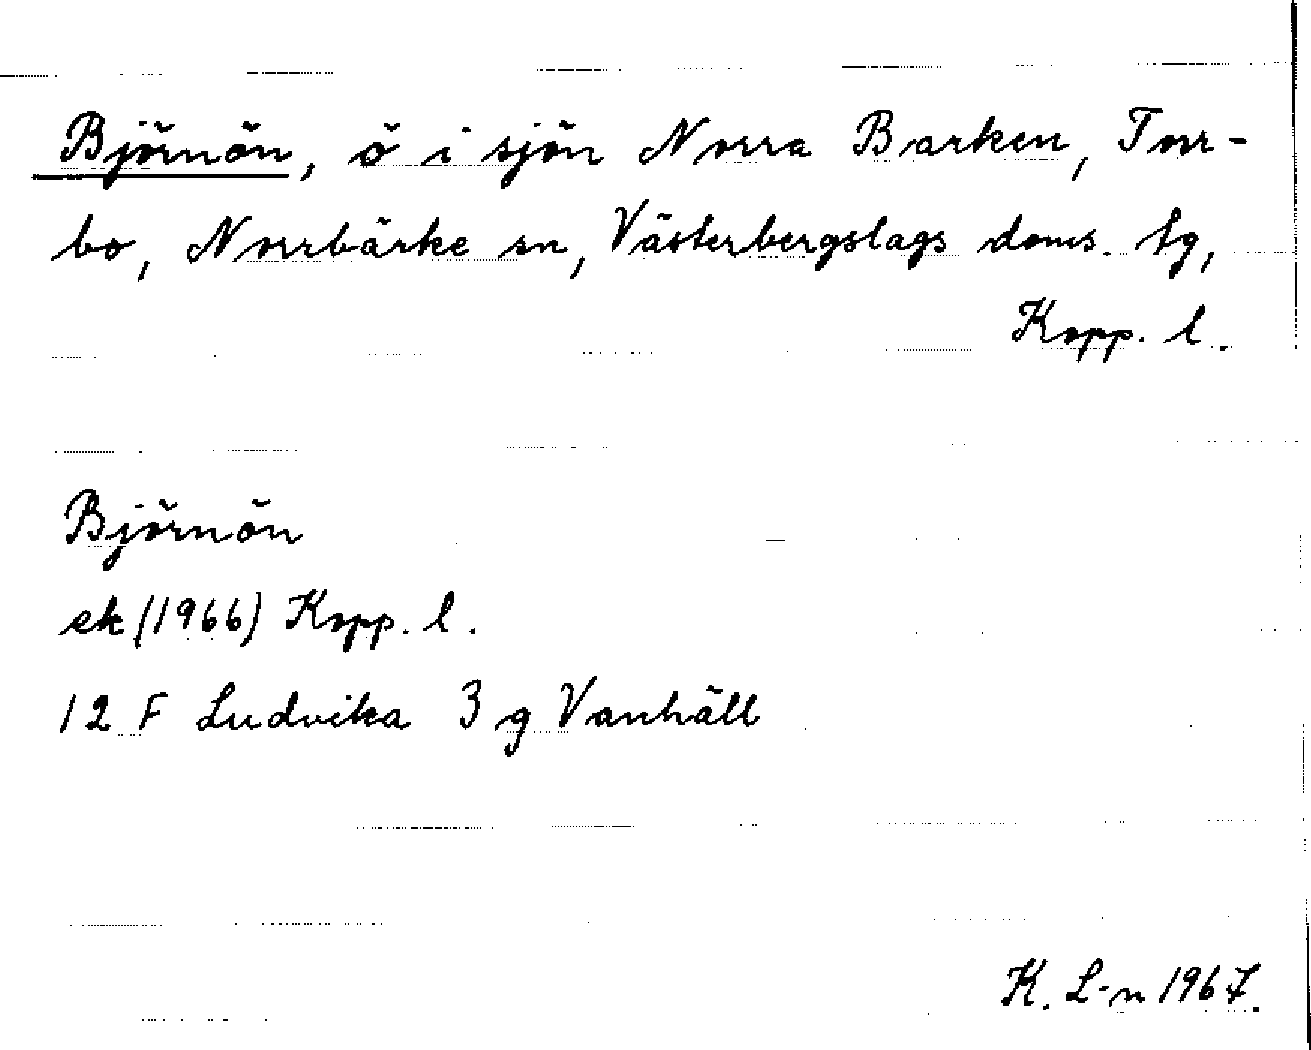 Björnön, ö i sjön Norra Barken, Torr-
bo, Norrbärke sn, Västerbergslags doms. tg,
Kopp. l.
Björnön
ek (1966) Kopp. l.
12 F Ludvika 3 g Vanhäll
K. L-n 1967.